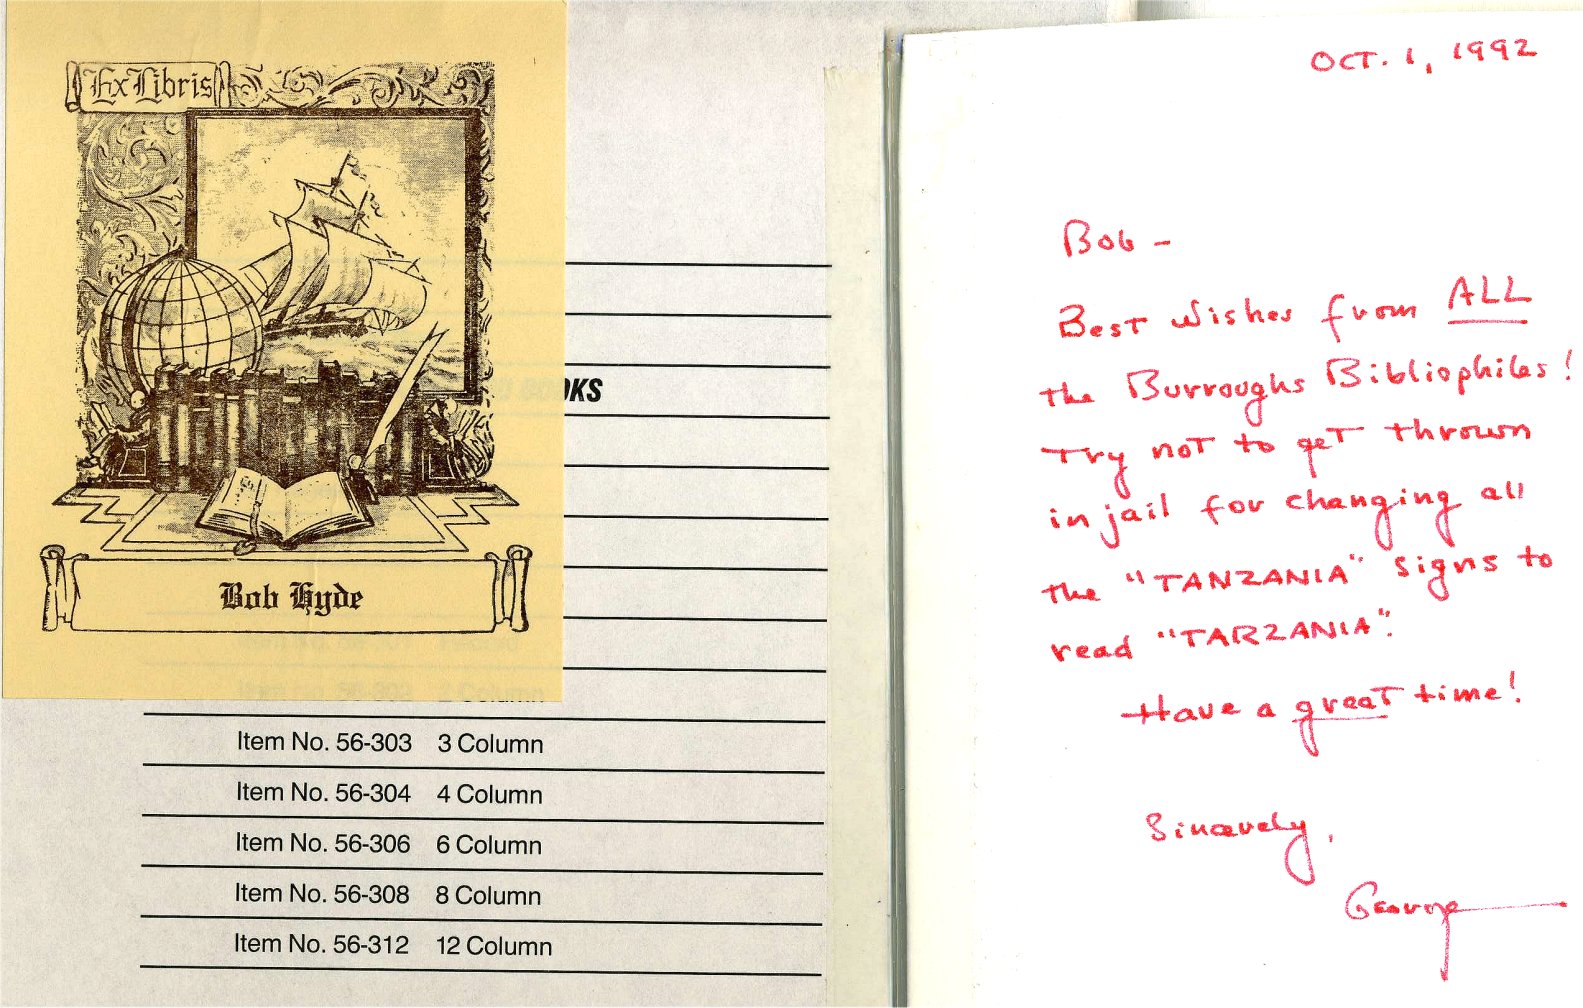 Ex Libris
Bob Hyde
BOOKS
Item No. 56-302 2 Column
Item No. 56-303 3 Column
Item No. 56-304 4 Column
Item No. 56-306 6 Column
Item No. 56-308 8 Column
Item No. 56-312 12 Column
OCT. 1, 1992
Bob -
Best Wishes from ALL
the Burroughs Bibliophiles!
Try not to get thrown
in jail for changing all
the "TANZANIA" signs to
read "TARZANIA".
Have a great time!
Sincerely,
George